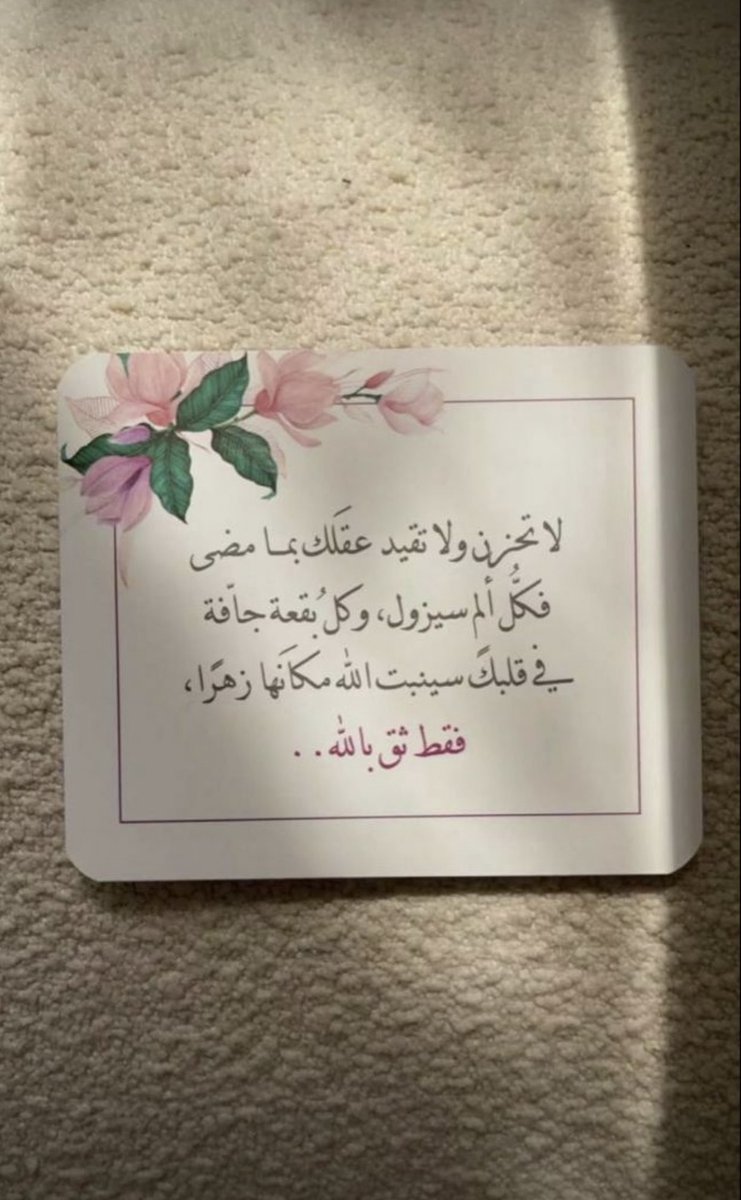 لا تحزن ولا تقيد عقَلك بمـا مضى
فكُلُّ ألم سيزول، وكل بُقعة جافّة
في قلبكً سينبت الله مكاَنها زهرًا،
فقط ثق بالله..